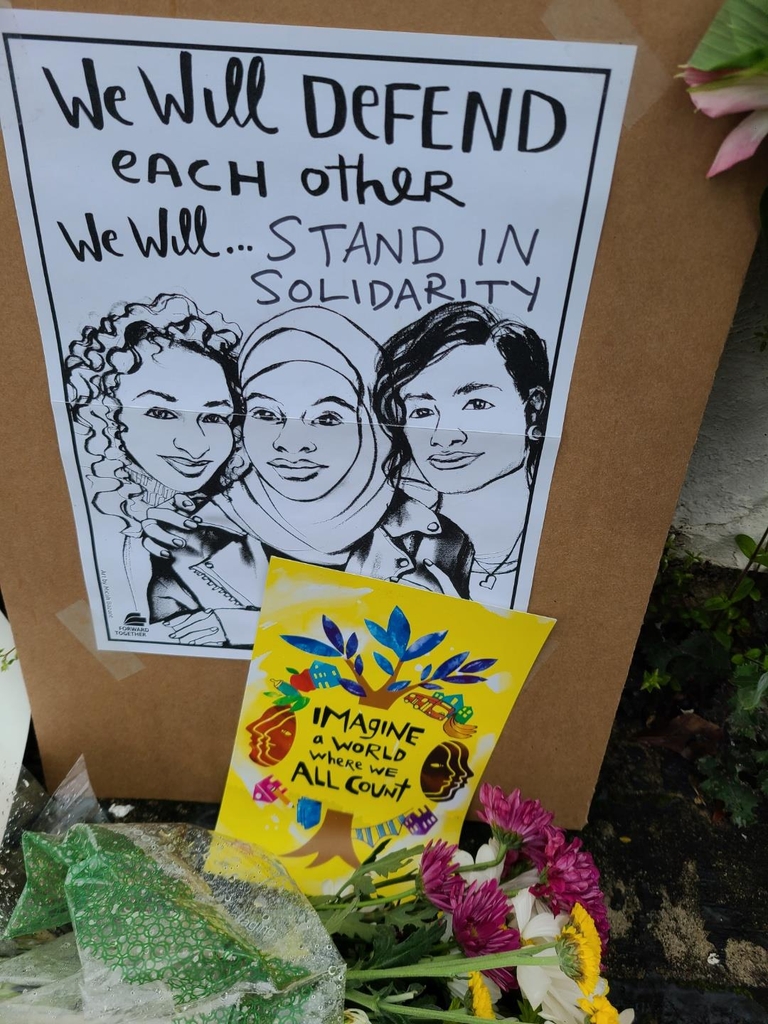 We Will DEFEND
EACH other
We Will... STAND IN
SOLIDARITY
FORWARD
TOGETHER
IMAGINE
a WORLD
where WE
ALL COUNT